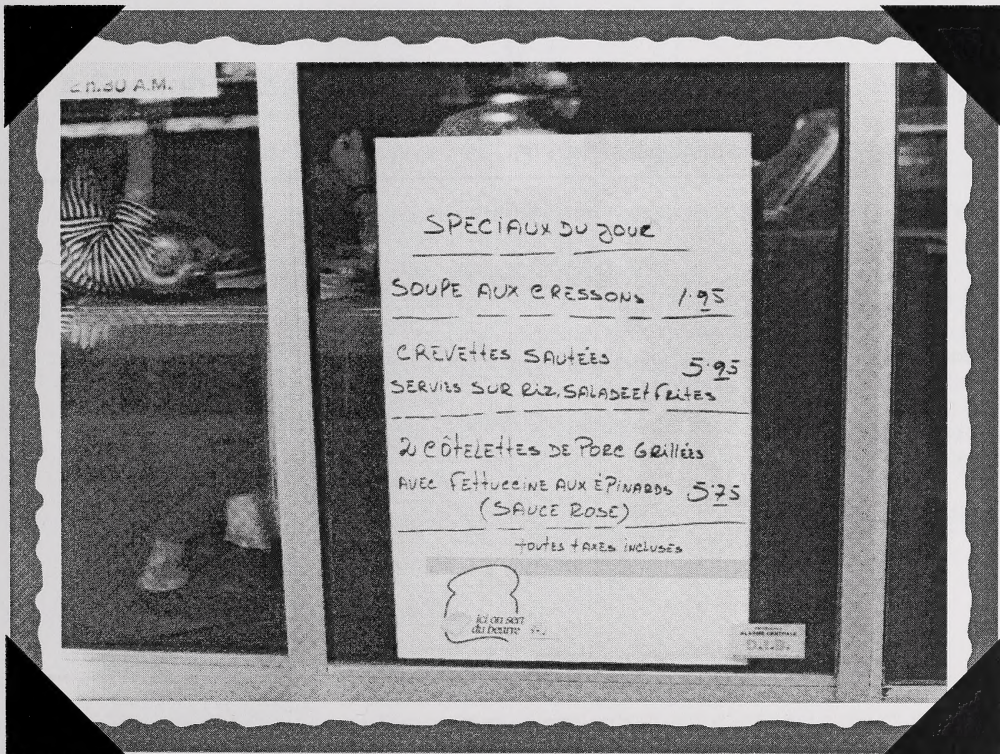 h.30 A.M.
SPECIAUX DU JOUR
SOUPE AUX CRESSONS 1.95
CREVETTES SAUTÉES 5.95
SERVIES SUR RIZ, SALADE ET FRITES
2 CÔTELETTES DE PORC GRILLÉES
AVEC FETTUCCINE AUX ÉPINARDS 5.75
(SAUCE ROSE)
TOUTES TAXES INCLUSES
ici on sert
du beurre
ALARME CENTRALE